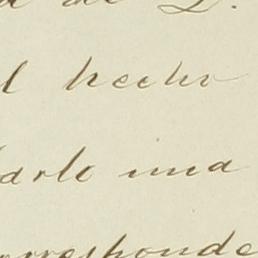 l hecho
darle una
corresponde